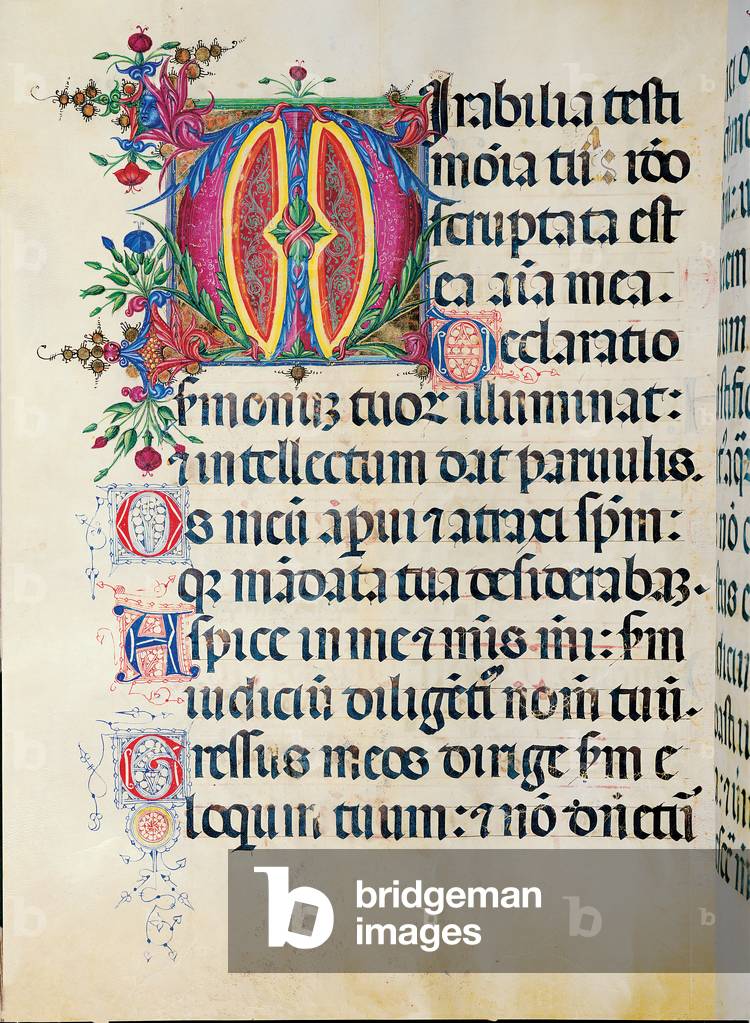 Mirabilia testi
mõia tua ideo
scruptata est
ea aĩa mea.
Declaratio
s̃monuʒ tuoꝝ illuminat:
⁊ intellectum dat paruulis.
Os meũ ap̃ui ⁊ atraxi sp̃m:
qꝛ mãdata tua desiderabaʒ.
Aspice in me ⁊ mis̃ m̃i: s̃m
iudiciũ diligẽtiũ nom̃ tuũ.
Gressus meos dirige s̃m e
loquiũ tuum: ⁊ nõ dñetũ
bridgeman
images